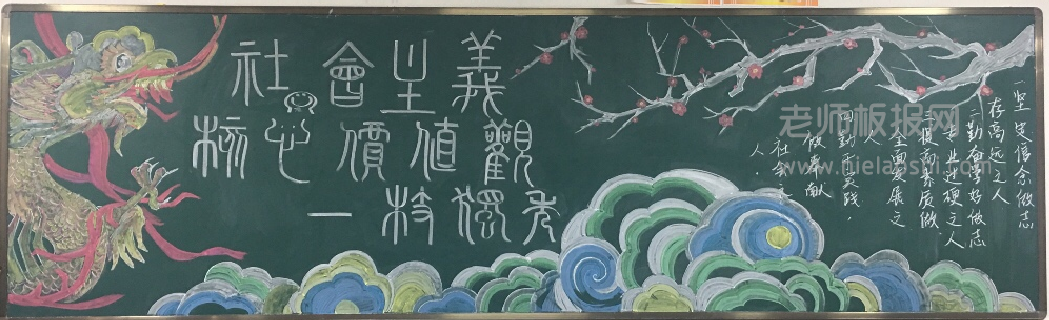 社會主義
核心價值觀
一枝獨秀
一坚定信念做志
存高远之人
二勤奋学好做志
专业过硬之人
三提高素质做
全面发展之
人
四勤于实践,
做奉献
社会之
人.
老师板报网